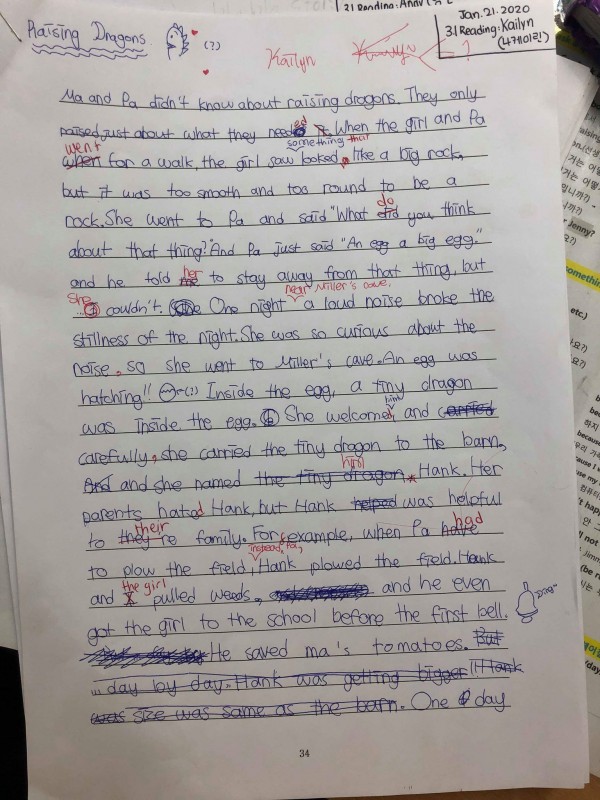 31 Reading: Ann
Raising Dragons.
(?)
Kailyn
Kailyn
?
Jan. 21. 2020
31 Reading: Kailyn
(4케이린)
Ma and Pa didn't know about raising dragons. They only
raised just about what they needed. When the girl and Pa
went when for a walk, the girl saw something that looked like a big rock,
but it was too smooth and too round to be a
rock. She went to Pa and said "What do did you think
about that thing?" And Pa just said "An egg a big egg."
and he told her me to stay away from that thing, but
She I couldn't. One night near Miller's cave, a loud noise broke the
stillness of the night. She was so curious about the
noise, so she went to Miller's cave. An egg was
hatching!! (?) Inside the egg, a tiny dragon
was inside the egg. She welcomed him and carried
carefully, she carried the tiny dragon to the barn,
And and she named the tiny dragon him Hank. Her
parents hated Hank, but Hank helped was helpful
to they're their family. For example, when Pa have had
to plow the field, instead Pa, Hank plowed the field. Hank
and I the girl pulled weeds, and he even
got the girl to the school before the first bell.
He saved ma's tomatoes. But
... day by day. Hank was getting bigger!! Hank
was size was same as the barn. One day
34
jenny?
etc.)